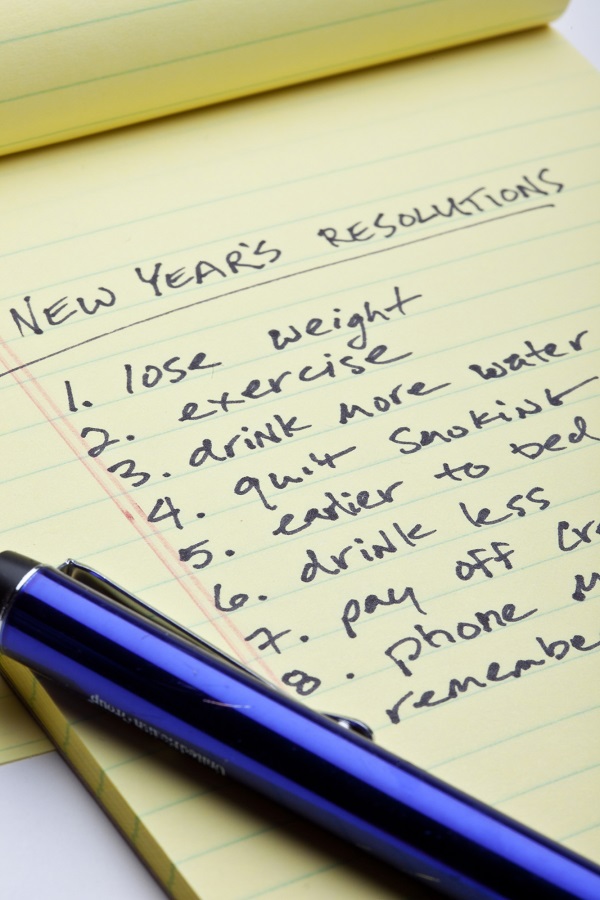 NEW YEAR'S RESOLUTIONS
1. lose weight
2. exercise
3. drink more water
4. quit smoking
5. earlier to bed
6. drink less
7. pay off
8. phone
remember